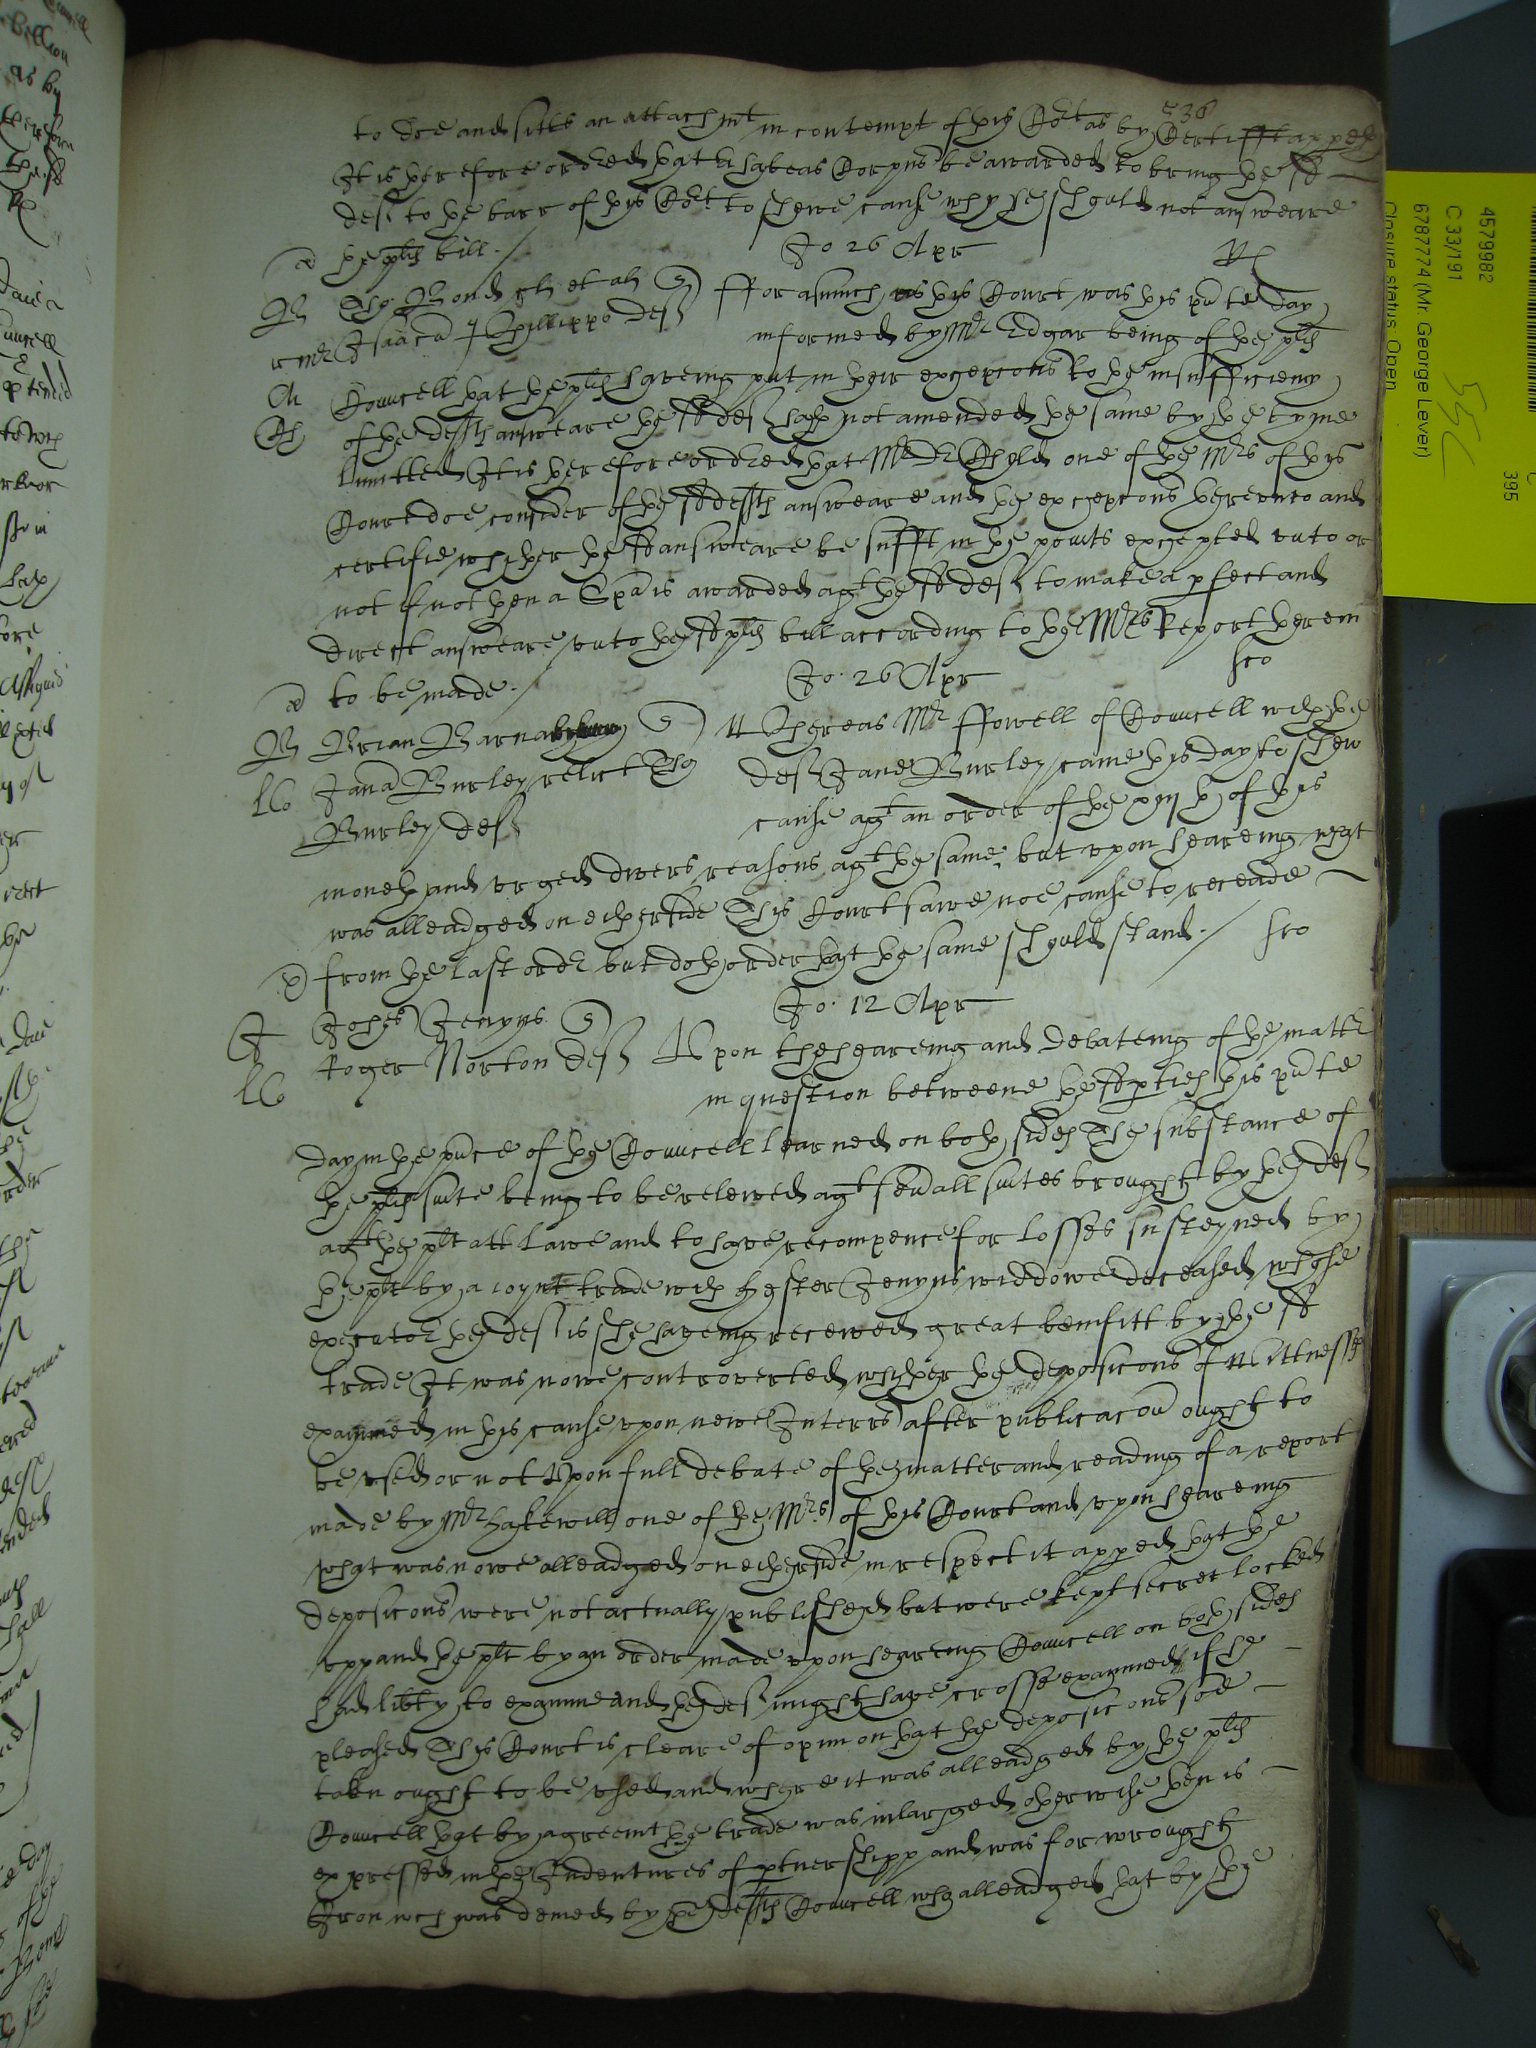 536
to doe and sitts an attachmt in contempt of this Cort as by Certifft appeth
It is therefore ordred that Habeas Corpus be awarded to bring the sd
deft to the barr of this Cort to shewe cause why he should not answeare
the plts bill.
Jo 26 Apr
Tho Bond plt et al
Isaacu Phillippo deft
Forasmuch as this Court was this pnte day
informed by Mr Edgar being of the plts
Councell that the plts haveing put in their excepcons to the insufficiency
of the defts answeare the sd deft hath not amended the same by the tyme
limitted It is therefore ordred that Mr Dr Child one of the Mrs of this
Court doe consider of the sd defts answeare and the excepcons thereunto and
certifie whether the sd answeare be sufft in the points excepted unto or
not if not then a Spa is awarded agt the sd deft to make a pfect and
direct answeare unto the sd plts bill according to the Mrs Report therein
to be made.
Jo. 26 Apr
Brian Barnaby
Jana Burley relict Tho
Burley deft
Whereas Mr ffowell of Councell with the
deft Jane Burley came this day to shew
cause agt an order of the xiij th of this
moneth and urged divers reasons agt the same, but upon heareing what
was alleadged on either side This Court sawe noe cause to receade
from the last ordr but doth order that the same should stand.
Jo. 12 Apr
Johes Jenyns
Roger Norton deft
Upon the heareing and debateing of the mattr
in question betweene the sd pties this pnte
day in the pnce of the Councell learned on both sides The substance of
the plts suite being to be releived agt sevall suites brought by the deft
agt the plt att Lawe and to have recompence for losses susteyned by
the plt by a ioynt trade with Hester Jenyns widdowe deceased whose
executor the deft is she haveing received great benifitt by the sd
trade It was nowe controverted whether the deposicons of Wittnesses
examined in this cause upon newe Interrs after publicacon ought to
be used or not Upon full debate of the matter and reading of a report
made by Mr Hakewill one of the Mrs of this Court and upon heareing
what was nowe alleadged on either side in respect it apped that the
deposicons were not actually published but were kept secret locked
upp and the plt by an order made upon heareing Councell on both sides
had libty to examine and the deft might have crosse examined if he
pleased This Court is cleare of opinion that the deposicons soe
taken ought to be used and where it was alleadged by the plts
Councell that by agreemt the trade was inlarged otherwise then is
expressed in the Indentures of ptnershipp and was for wrought
Iron wch was denied by the defts Councell who alleadged that by the
4579982
C 33/191
6787774 (Mr. George Lever)
Closure status: Open
395